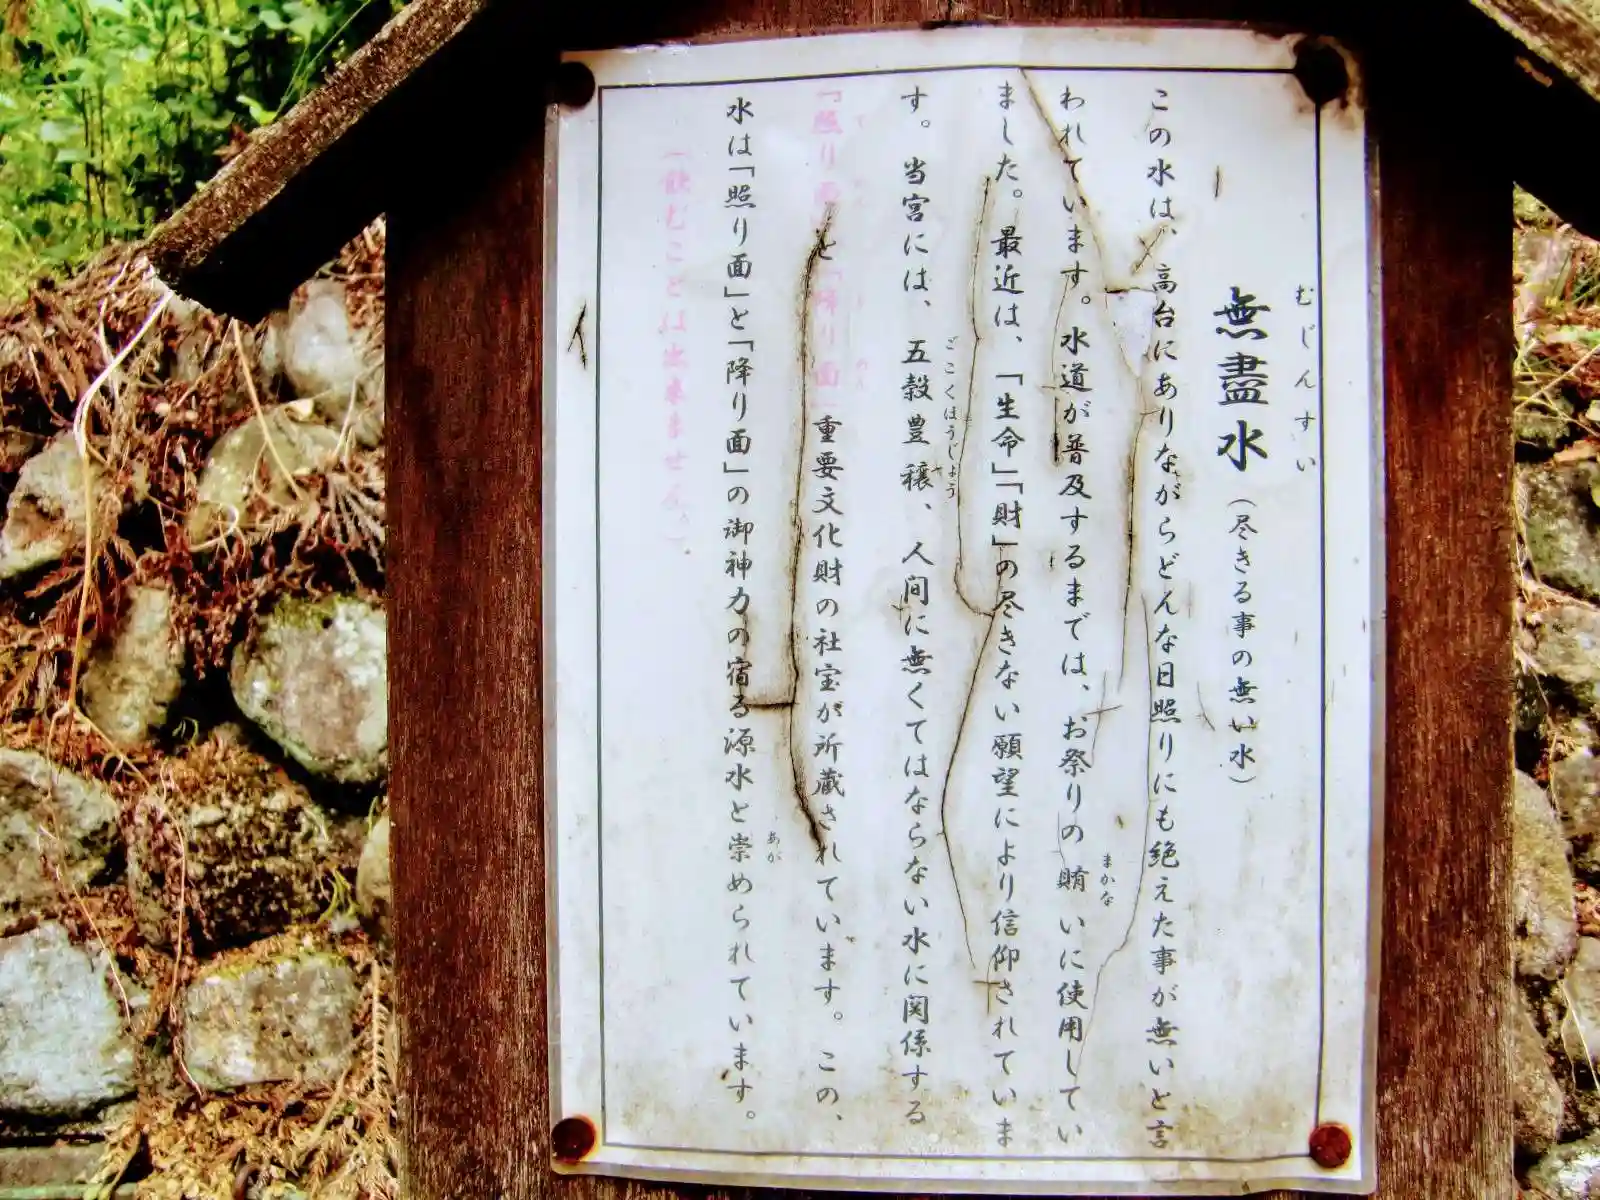 無盡水（尽きる事の無い水）
むじんすい
この水は、高台にありながらどんな日照りにも絶えた事が無いと言
われています。水道が普及するまでは、お祭りの賄いに使用してい
まかな
ました。最近は、「生命」「財」の尽きない願望により信仰されていま
す。当宮には、五穀豊穣、人間に無くてはならない水に関係する
ごこくほうじょう
『照り面』と『降り面』重要文化財の社宝が所蔵されています。この、
水は「照り面」と「降り面」の御神力の宿る源水と崇められています。
あが
（飲むことは出来ません。）